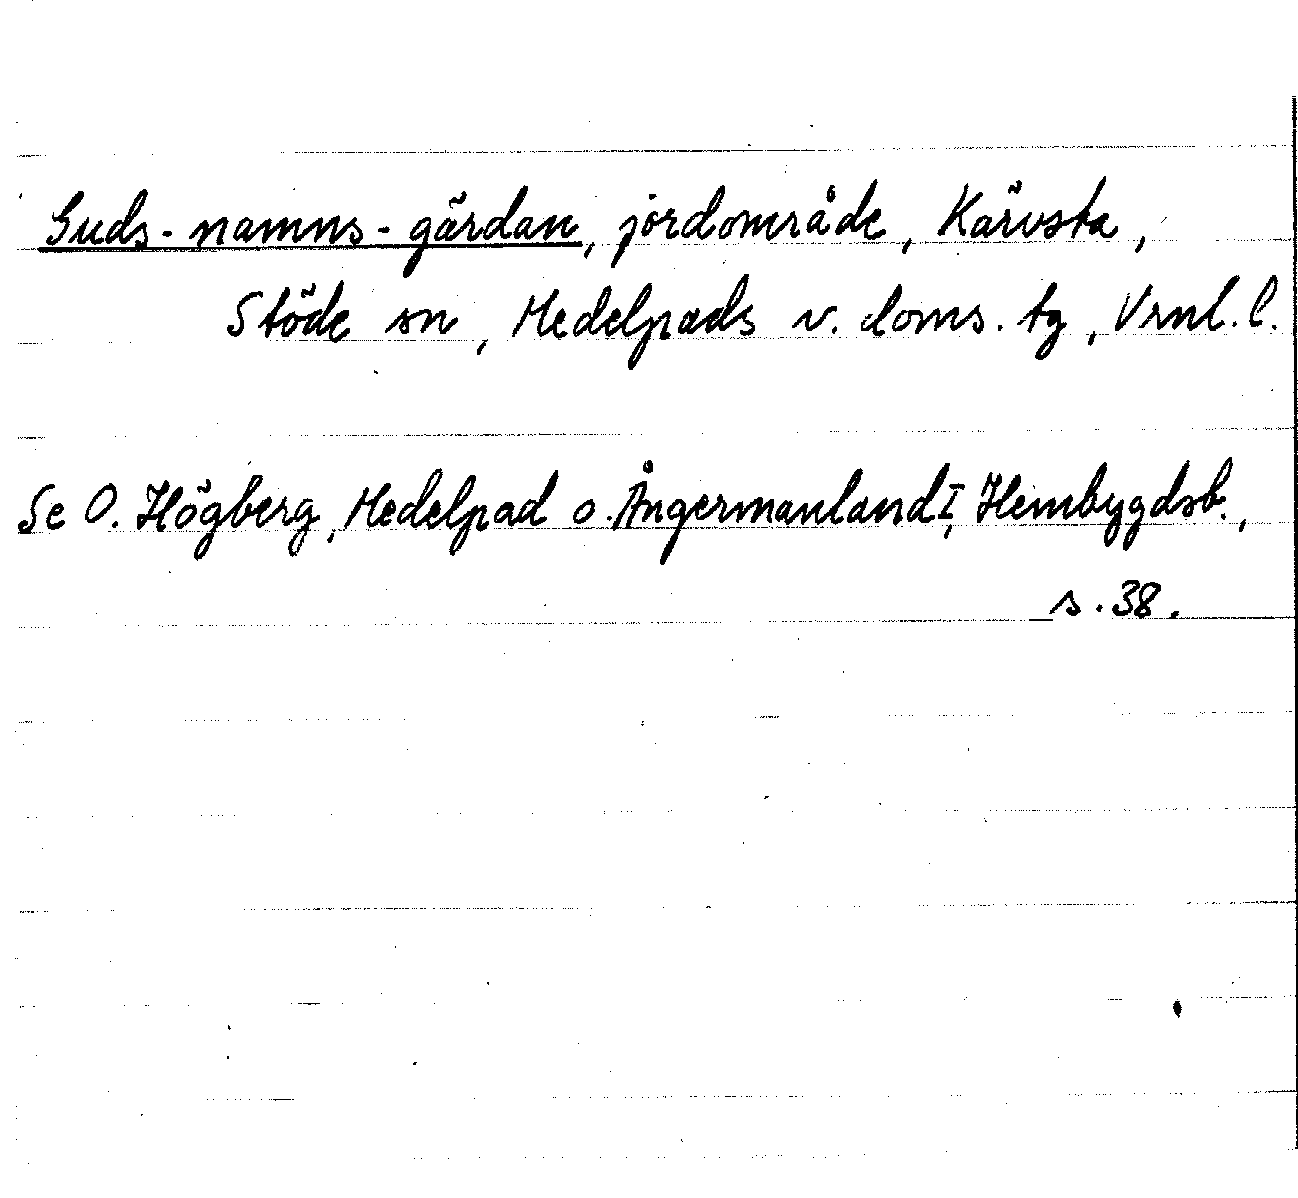 Guds-namns-gärdan, jordområde, Kärvsta,
Stöde sn, Medelpads v. doms. tg, Vrnl. l.
Se O. Högberg, Medelpad o. Ångermanland I, Hembygdsb.,
s. 38.